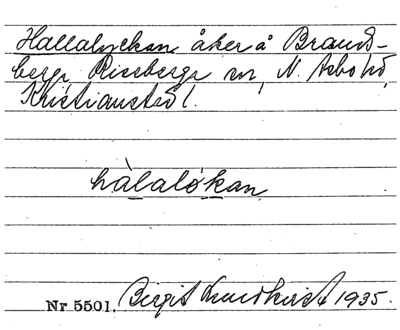 Hallalyckan åker å Brands-
berga Risseberga sn, N. Åsbo hd,
Kristianstad l.
hàlalókan
Nr 5501. Birgit Lundkvist 1935.